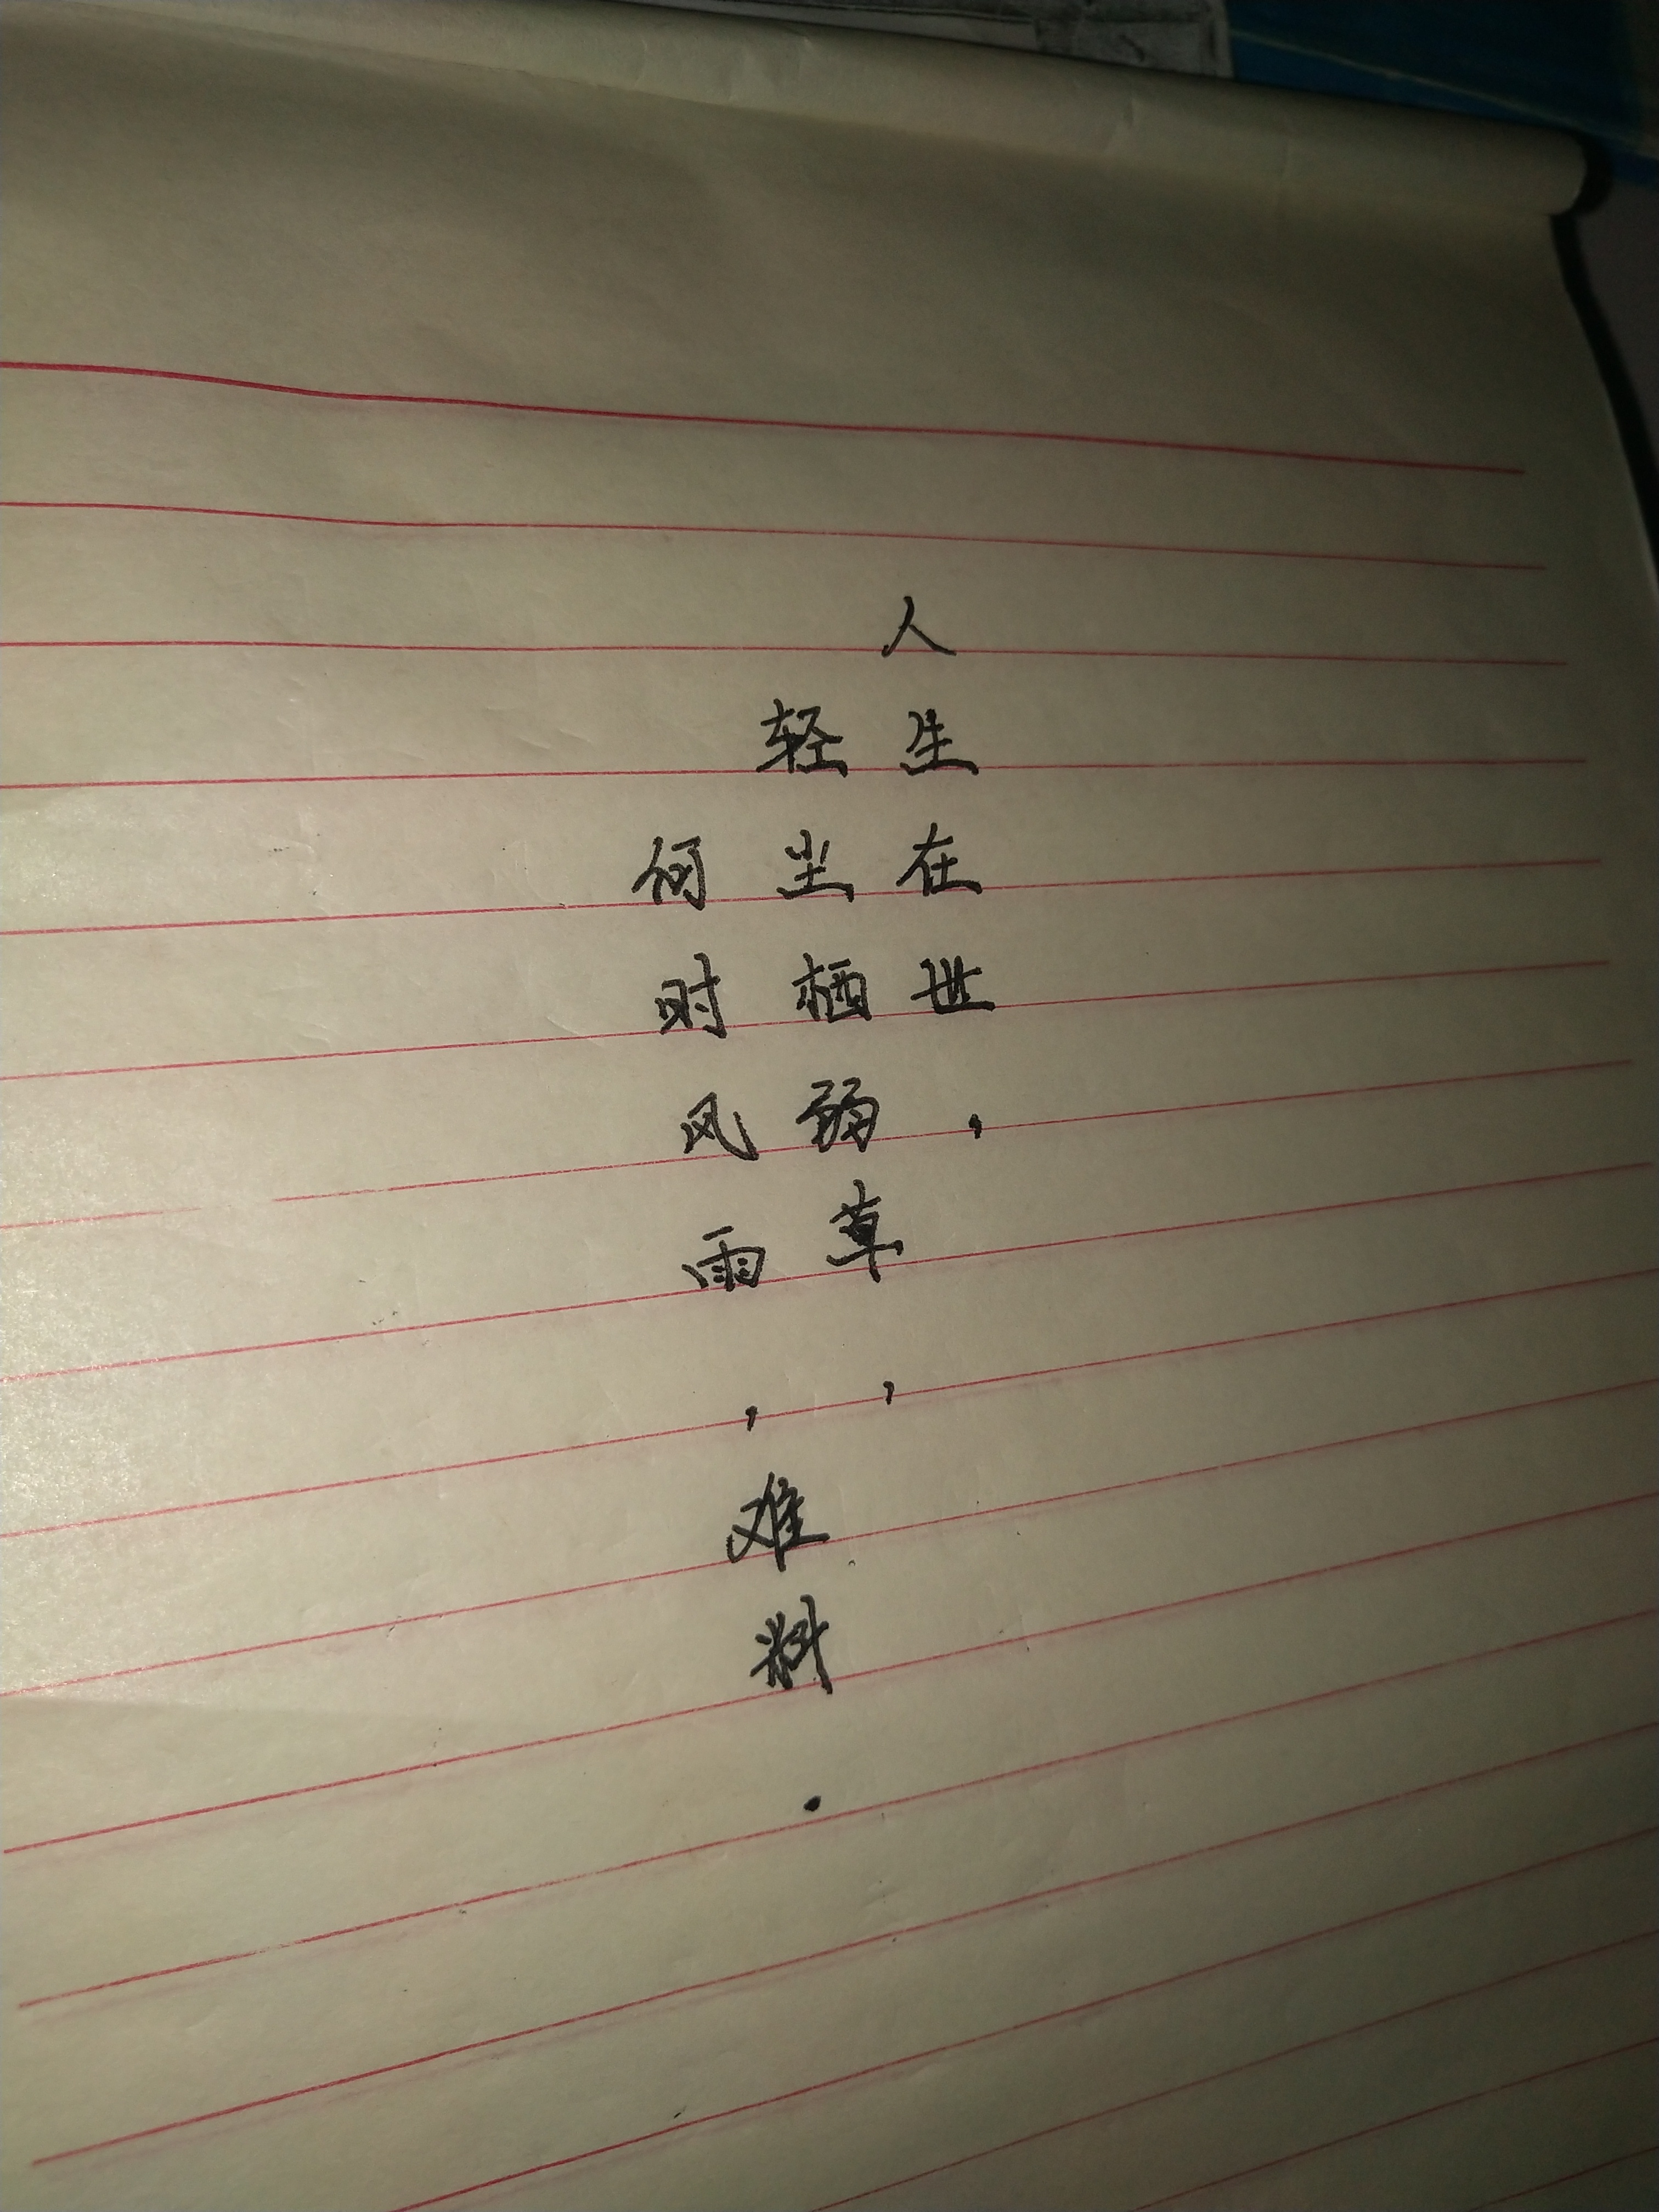 人生在世，
轻尘栖弱草，
何时风雨，难料.